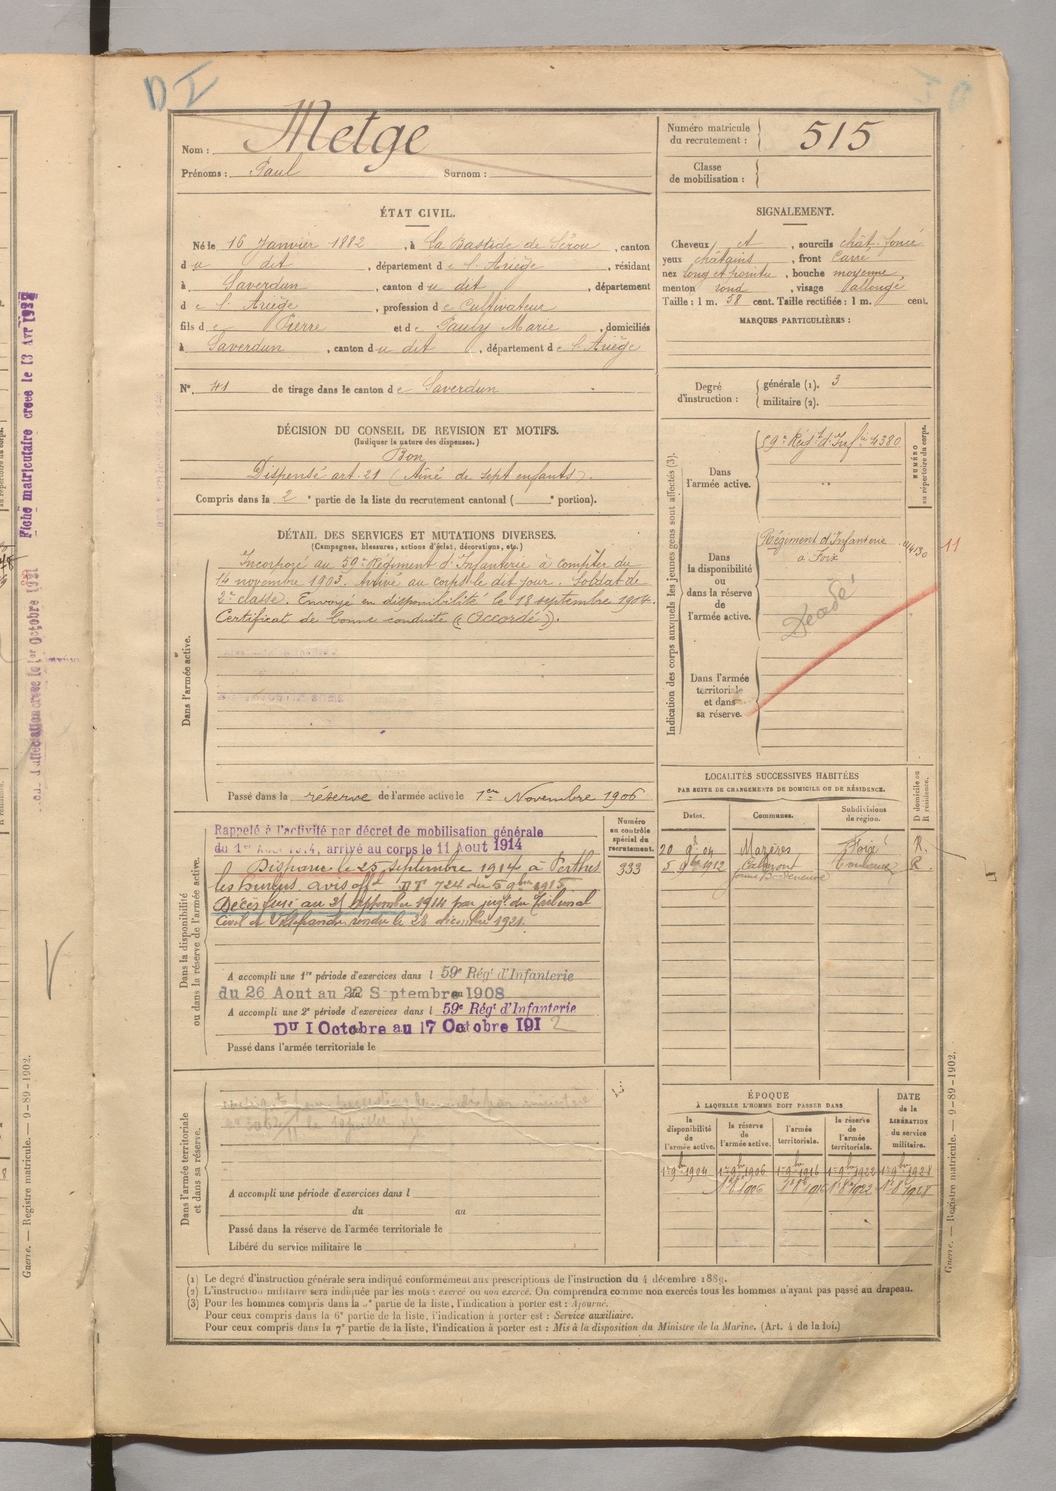 D I
Nom : Metge
Prénoms : Paul Surnom :
Numéro matricule du recrutement : 515
Classe de mobilisation :
ÉTAT CIVIL.
Né le 16 Janvier 1882, à La Bastide de Sérou, canton
du dit, département de l'Ariège, résidant
à Saverdun, canton du dit, département
de l'Ariège, profession de Cultivateur
fils de Pierre et de Pauly Marie, domiciliés
à Saverdun, canton du dit, département de l'Ariège
N° 41 de tirage dans le canton de Saverdun
SIGNALEMENT.
Cheveux et, sourcils chât. foncé
yeux châtains, front carré
nez long et pointu, bouche moyenne,
menton rond, visage allongé
Taille : 1 m. 58 cent. Taille rectifiée : 1 m. cent.
MARQUES PARTICULIÈRES :
Degré d'instruction : générale (1). 3
militaire (2).
DÉCISION DU CONSEIL DE REVISION ET MOTIFS.
(Indiquer la nature des dispenses.)
Bon
Dispensé art. 21 (Aîné de sept enfants).
Compris dans la 2e partie de la liste du recrutement cantonal ( e portion).
DÉTAIL DES SERVICES ET MUTATIONS DIVERSES.
(Campagnes, blessures, actions d'éclat, décorations, etc.)
Dans l'armée active.
Incorporé au 59e Régiment d'Infanterie à compter du
14 novembre 1903. Arrivé au corps le dit jour. Soldat de
2e classe. Envoyé en disponibilité le 18 septembre 1904.
Certificat de bonne conduite "Accordé".
Passé dans la réserve de l'armée active le 1er Novembre 1906
Indication des corps auxquels les jeunes gens sont affectés (3).
NUMÉRO au répertoire du corps.
Dans l'armée active.
59e Régt d'Infie 4380
Dans la disponibilité ou dans la réserve de l'armée active.
Régiment d'Infanterie
à Foix
11
Décédé
Dans l'armée territoriale et dans sa réserve.
Dans la disponibilité ou dans la réserve de l'armée active.
Numéro au contrôle spécial du recrutement.
333
Rappelé à l'activité par décret de mobilisation générale
du 1er Août 1914, arrivé au corps le 11 Août 1914
Disparu le 25 septembre 1914 à Perthes
les Hurlus avis offel 724 du 5 9bre 1915.
Décès fixé au 25 septembre 1914 par jugt du Tribunal
Civil de Villefranche rendu le 28 décembre 1921.
A accompli une 1re période d'exercices dans l 59e Régt d'Infanterie
du 26 Aout au 22 Septembre 1908
A accompli une 2e période d'exercices dans l 59e Régt d'Infanterie
Du 1 Octobre au 17 Octobre 1912
Passé dans l'armée territoriale le
LOCALITÉS SUCCESSIVES HABITÉES
PAR SUITE DE CHANGEMENTS DE DOMICILE OU DE RÉSIDENCE.
Dates. Communes. Subdivisions de région. D domicile ou R résidence.
20 9bre 04 Mazères Foix R.
5 9bre 1912 Calmont Toulouse R.
Dans l'armée territoriale et dans sa réserve.
A accompli une période d'exercices dans l
du au
Passé dans la réserve de l'armée territoriale le
Libéré du service militaire le
ÉPOQUE
À LAQUELLE L'HOMME DOIT PASSER DANS
DATE de la LIBÉRATION du service militaire.
la disponibilité de l'armée active. la réserve de l'armée active. l'armée territoriale. la réserve de l'armée territoriale.
1er 9bre 1904 1er 9bre 1906 1er 9bre 1916 1er 9bre 1922 1er 9bre 1928
(1) Le degré d'instruction générale sera indiqué conformément aux prescriptions de l'instruction du 4 décembre 1889.
(2) L'instruction militaire sera indiquée par les mots : exercé ou non exercé. On comprendra comme non exercés tous les hommes n'ayant pas passé au drapeau.
(3) Pour les hommes compris dans la 5e partie de la liste, l'indication à porter est : Ajourné.
Pour ceux compris dans la 6e partie de la liste, l'indication à porter est : Service auxiliaire.
Pour ceux compris dans la 7e partie de la liste, l'indication à porter est : Mis à la disposition du Ministre de la Marine. (Art. 4 de la loi.)
Guerre. — Registre matricule. — 9-89-1902.
Guerre. — Registre matricule. — 9-89-1902.
Fiche matriculaire créée le 13 Avr 1932